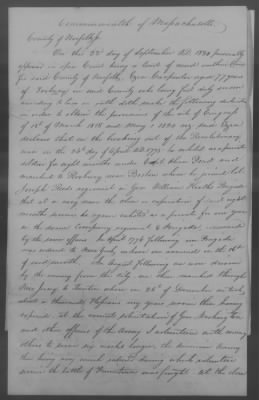 Commonwealth of Massachusetts
County of Norfolk ss
On this 22d day of September A.D. 1820 personally
appeared in open Court being a Court of record within & for
for said County of Norfolk, Ezra Carpenter aged 77 years
of Foxboro' in said County who being first duly sworn
according to law on oath doth make the following declaration
in order to obtain the provisions of the acts of Congress
of 18th of March 1818 and 1st May 1820 viz. said Ezra
declares that on the breaking out of the Revolutionary
war on the 23d day of April A.D. 1775 he enlisted as a private
soldier for eight months under Capt. and
marched to Roxbury near Boston where he joined Col.
Joseph Reeds regiment in Gen. William Heaths Brigade
that at or very near the close or expiration of said eight
months service he again enlisted as a private for one year
in the same Company regiment & Brigade, commanded
by the same officers. In April 1776 following our Brigade
was ordered to New York, where we arrived on the
of said month. In August following we were driven
by the enemy from this city. We then marched through
New Jersey to Trenton where on 26th of December we took
about a thousand Hessians my years service then having
expired, at the earnest solicitation of Gen. Washington
and other officers of the Army I volunteered with many
others to serve six weeks longer, the American Army
this being very much reduced during which volunteer
service the battle of Princetown was fought. at the close